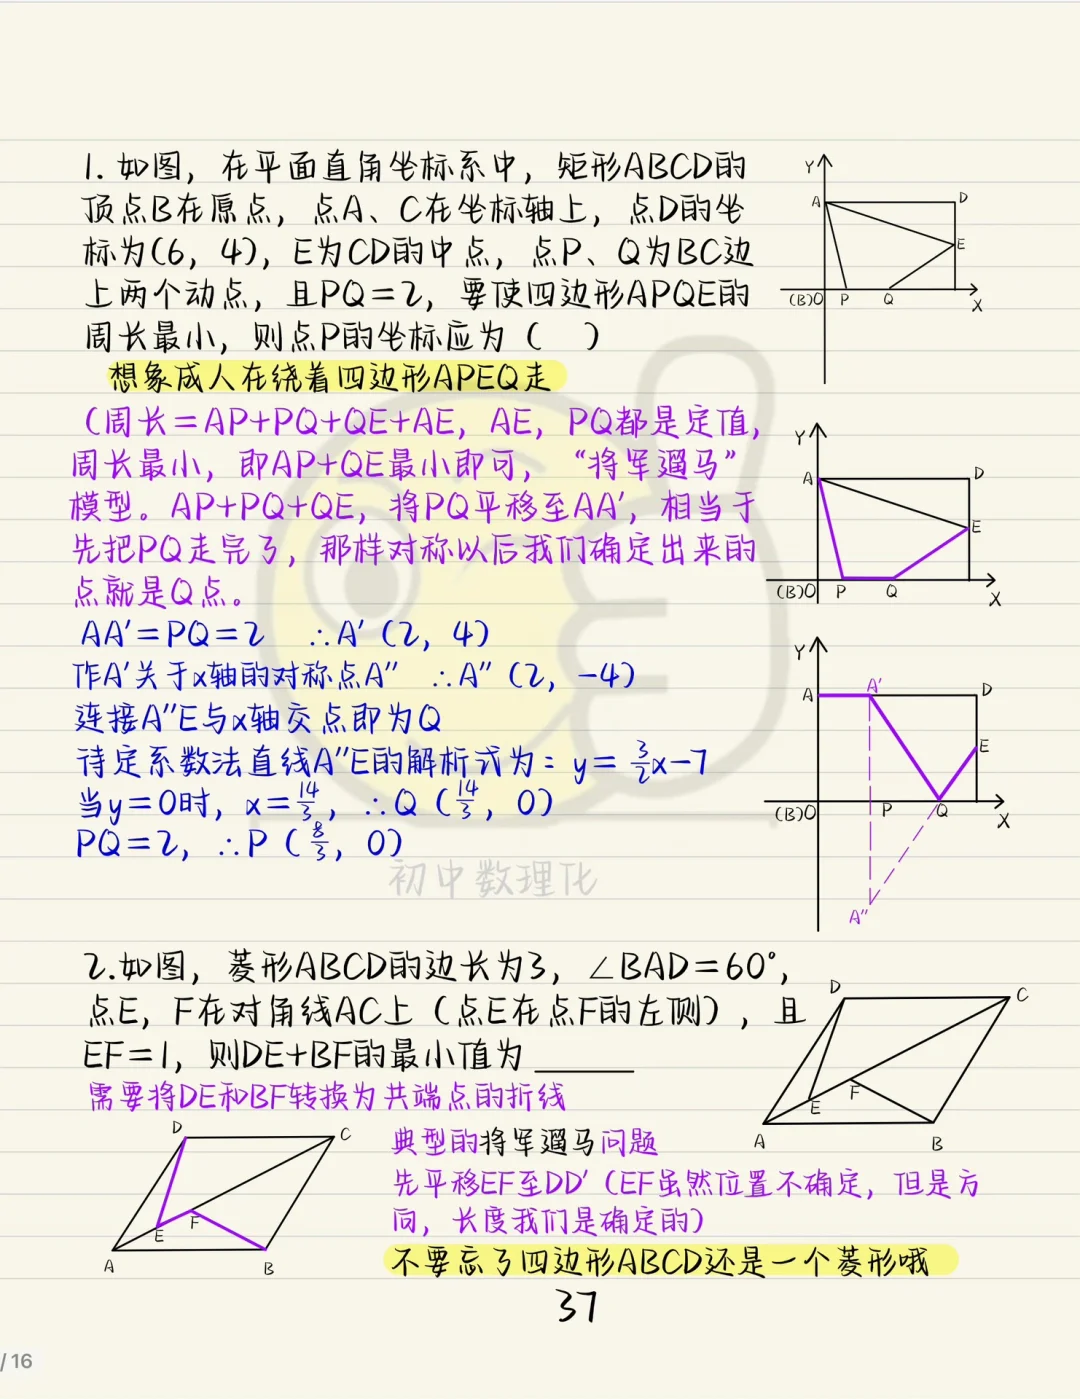 1. 如图，在平面直角坐标系中，矩形ABCD的
顶点B在原点，点A、C在坐标轴上，点D的坐
标为(6，4)，E为CD的中点，点P、Q为BC边
上两个动点，且PQ＝2，要使四边形APQE的
周长最小，则点P的坐标应为（　）
想象成人在绕着四边形APEQ走
（周长＝AP+PQ+QE+AE，AE，PQ都是定值，
周长最小，即AP+QE最小即可，“将军遛马”
模型。AP+PQ+QE，将PQ平移至AA′，相当于
先把PQ走完了，那样对称以后我们确定出来的
点就是Q点。
AA′＝PQ＝2　∴A′（2，4）
作A′关于x轴的对称点A″　∴A″（2，-4）
连接A″E与x轴交点即为Q
待定系数法直线A″E的解析式为：y＝3/2x-7
当y＝0时，x＝14/3，∴Q（14/3，0）
PQ＝2，∴P（8/3，0）
初中数理化
Y
A
D
E
(B)O
P
Q
X
Y
A
D
E
(B)O
P
Q
X
Y
A
A′
D
E
(B)O
P
Q
X
A″
2.如图，菱形ABCD的边长为3，∠BAD＝60°，
点E，F在对角线AC上（点E在点F的左侧），且
EF＝1，则DE+BF的最小值为______
需要将DE和BF转换为共端点的折线
D
C
E
F
A
B
D
C
E
F
A
B
典型的将军遛马问题
先平移EF至DD′（EF虽然位置不确定，但是方
向，长度我们是确定的）
不要忘了四边形ABCD还是一个菱形哦
37
/ 16